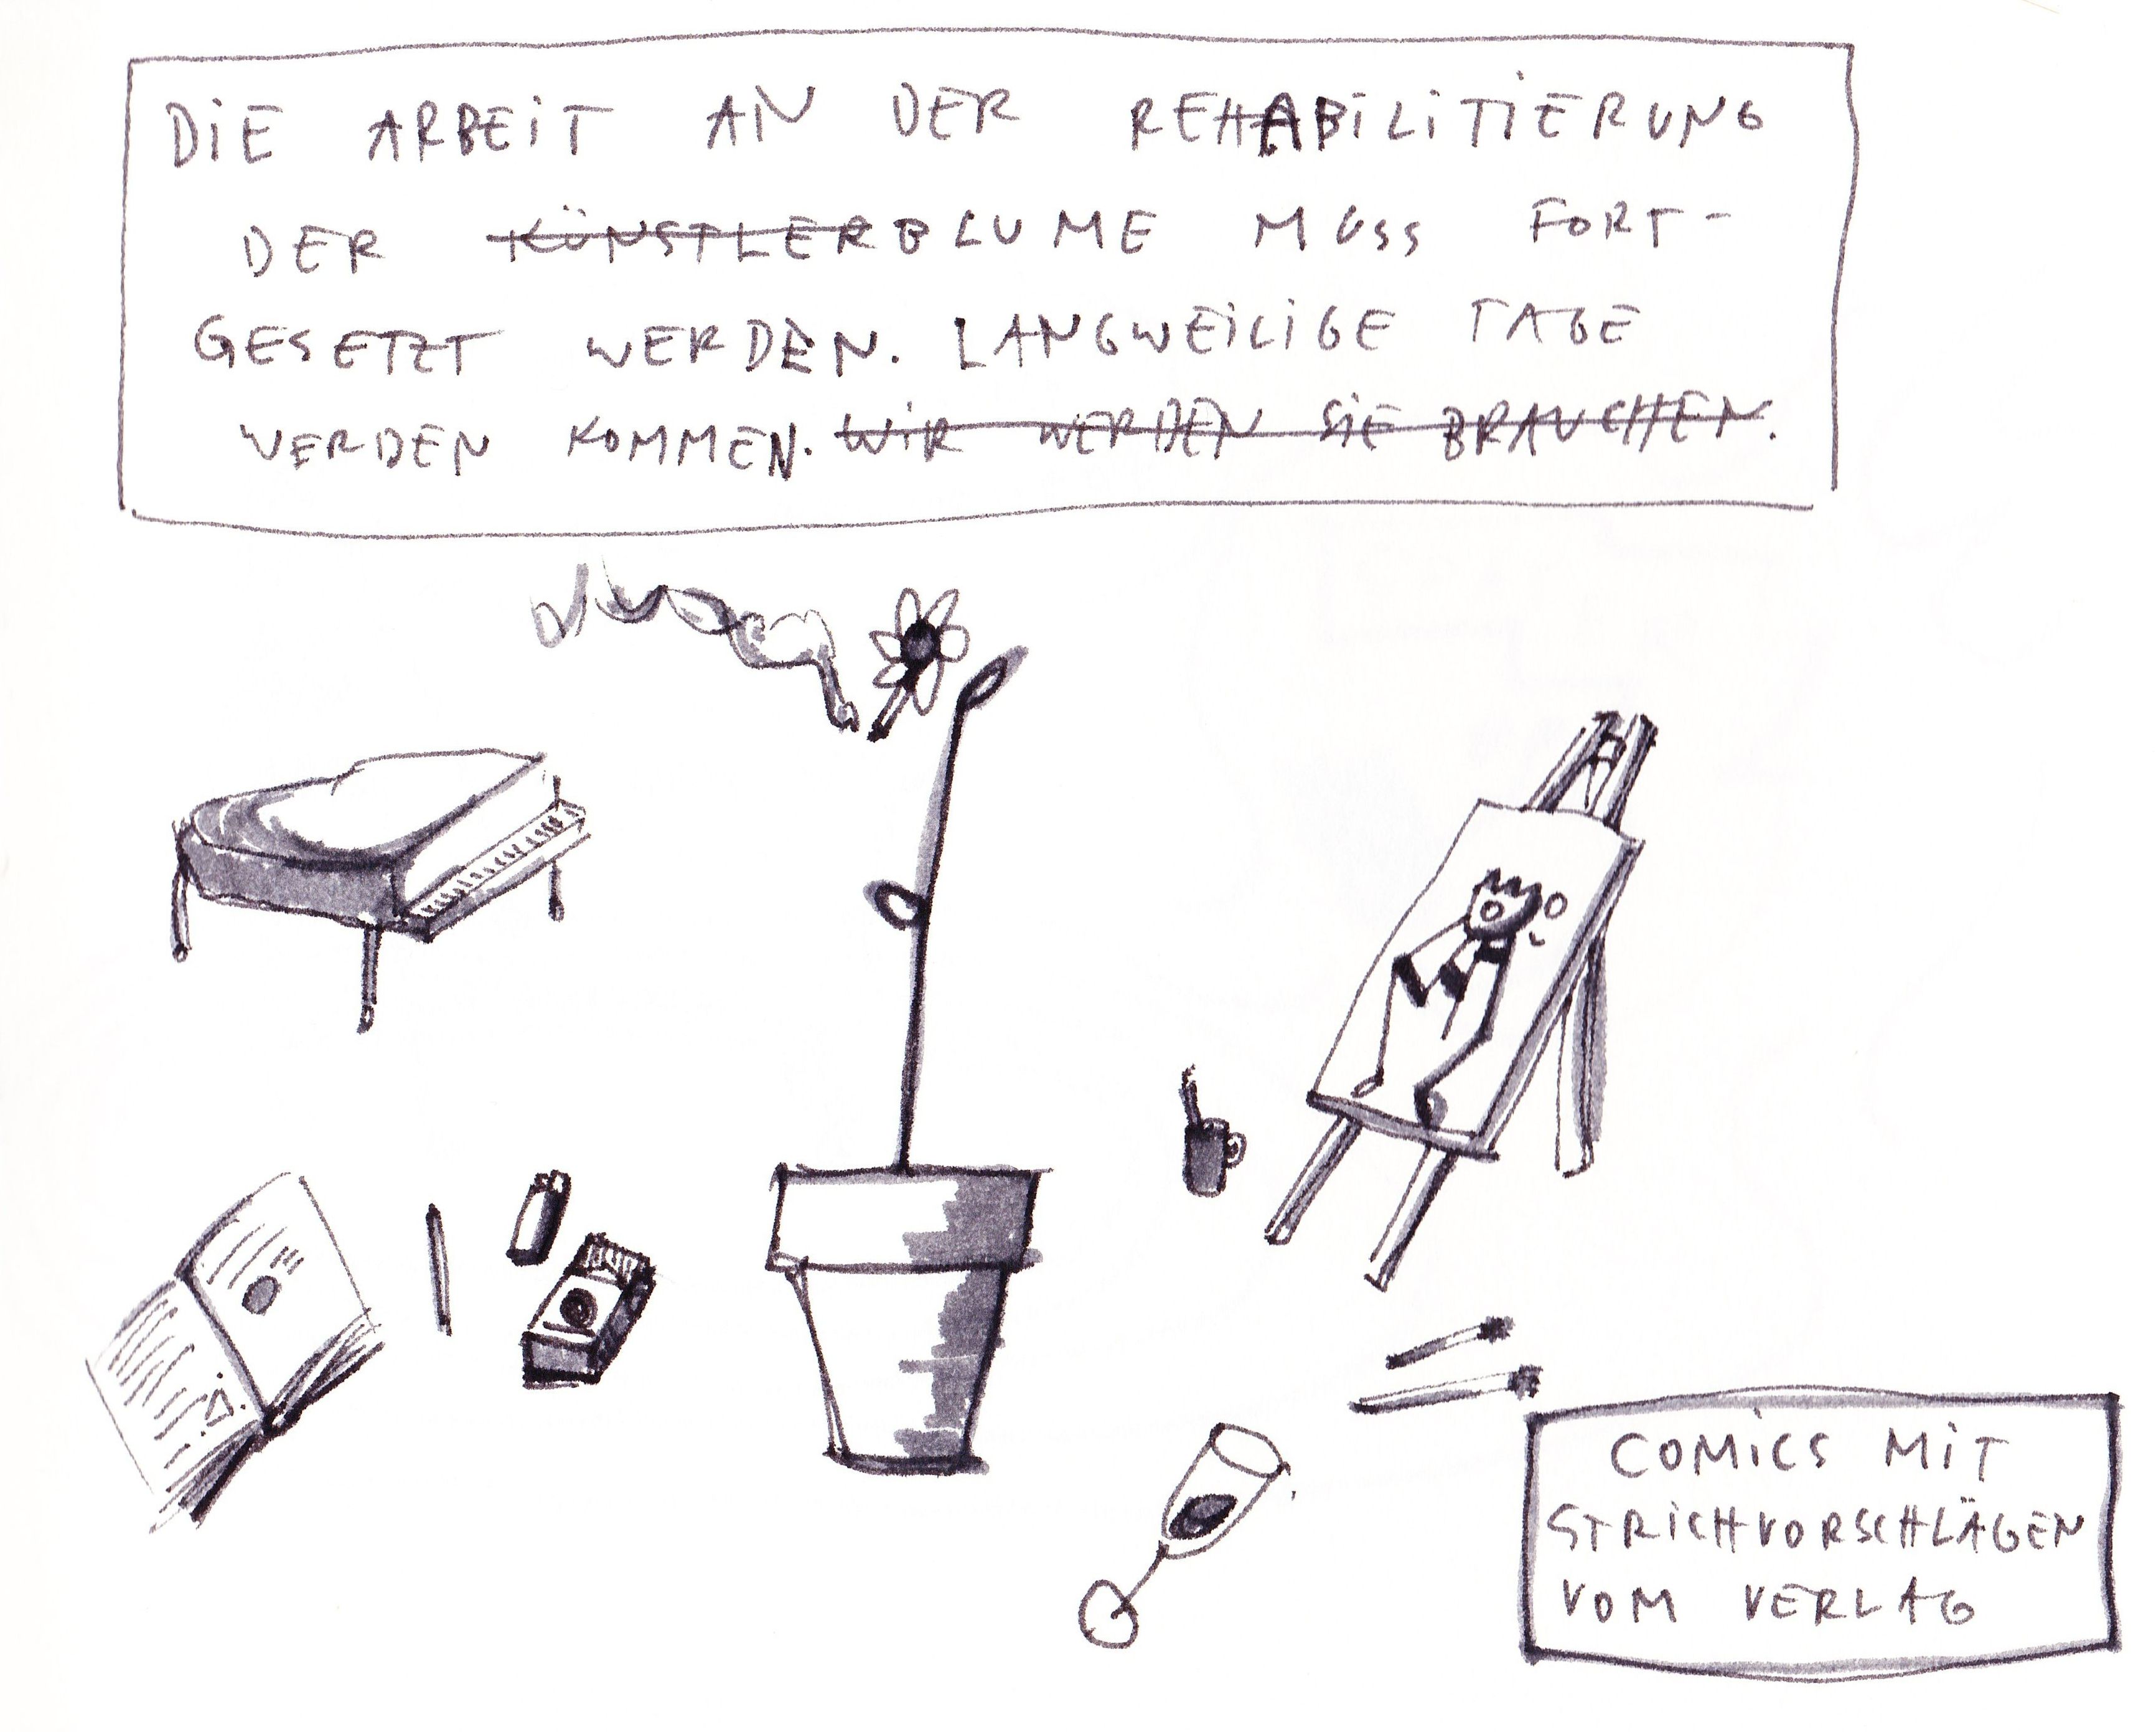 DIE ARBEIT AN DER REHABILITIERUNG
DER KÜNSTLERBLUME MUSS FORT-
GESETZT WERDEN. LANGWEILIGE TAGE
WERDEN KOMMEN. WIR WERDEN SIE BRAUCHEN.
COMICS MIT
STRICHVORSCHLÄGEN
VOM VERLAG